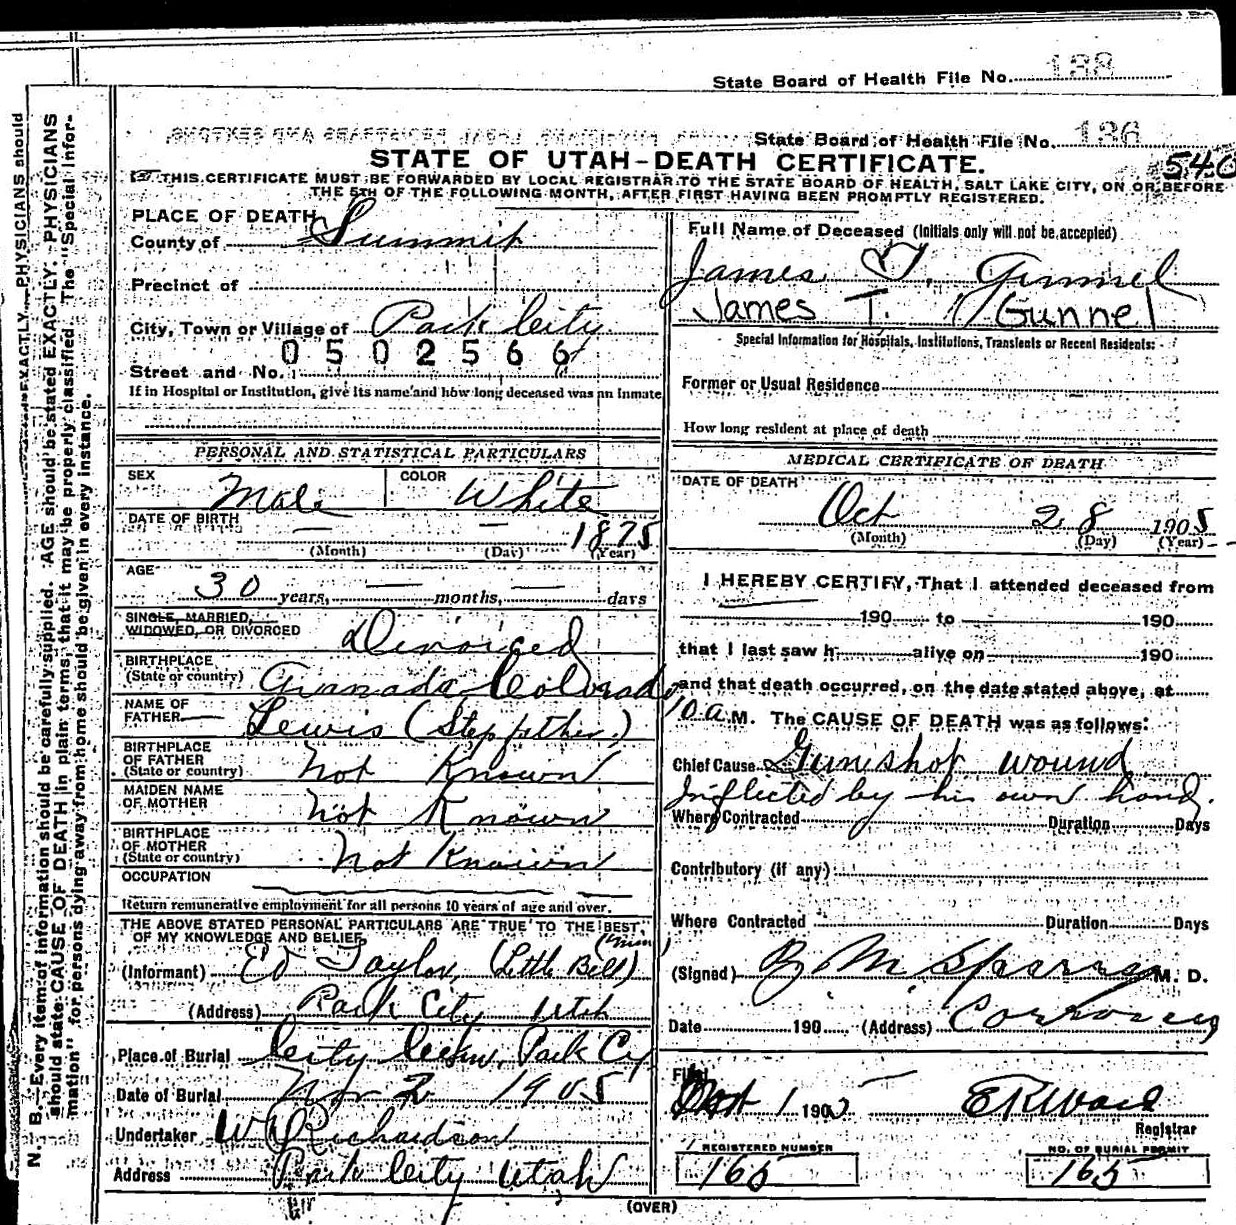 State Board of Health File No. 138
State Board of Health File No. 136
STATE OF UTAH-DEATH CERTIFICATE.
546
THIS CERTIFICATE MUST BE FORWARDED BY LOCAL REGISTRAR TO THE STATE BOARD OF HEALTH, SALT LAKE CITY, ON OR BEFORE
THE 5TH OF THE FOLLOWING MONTH, AFTER FIRST HAVING BEEN PROMPTLY REGISTERED.
N. B.—Every item of information should be carefully supplied. AGE should be stated EXACTLY. PHYSICIANS
should state CAUSE OF DEATH in plain terms, that it may be properly classified. The "Special Infor-
mation" for persons dying away from home should be given in every instance.
EXACTLY. PHYSICIANS should
PLACE OF DEATH
County of Summit
Precinct of
City, Town or Village of Park City
0502566
Street and No.
If in Hospital or Institution, give its name and how long deceased was an inmate
PERSONAL AND STATISTICAL PARTICULARS
SEX Male COLOR White
DATE OF BIRTH — — 1875
(Month) (Day) (Year)
AGE
30 years, — months, — days
SINGLE, MARRIED,
WIDOWED, OR DIVORCED Divorced
BIRTHPLACE
(State or country) Granada Colorado
NAME OF
FATHER Lewis (Stepfather)
BIRTHPLACE
OF FATHER
(State or country) Not Known
MAIDEN NAME
OF MOTHER Not Known
BIRTHPLACE
OF MOTHER
(State or country) Not Known
OCCUPATION
Return remunerative employment for all persons 10 years of age and over.
THE ABOVE STATED PERSONAL PARTICULARS ARE TRUE TO THE BEST
OF MY KNOWLEDGE AND BELIEF
(Informant) Ed Taylor (Little Bell)
(Address) Park City Utah
Place of Burial City Cem, Park Cy
Date of Burial Nov 2 1905
Undertaker W Richardson
Address Park City Utah
Full Name of Deceased (Initials only will not be accepted)
James T. Gunnel
James T. Gunnel
Special Information for Hospitals, Institutions, Transients or Recent Residents:
Former or Usual Residence
How long resident at place of death
MEDICAL CERTIFICATE OF DEATH
DATE OF DEATH
Oct 28 1905
(Month) (Day) (Year)
I HEREBY CERTIFY, That I attended deceased from
190 to 190
that I last saw h alive on 190
and that death occurred, on the date stated above, at
10 a M. The CAUSE OF DEATH was as follows:
Chief Cause Gunshot wound
Inflicted by his own hand.
Where Contracted Duration Days
Contributory (if any)
Where Contracted Duration Days
(Signed) M. D.
Date 190 (Address)
Filed
1 190 E R Ward
Registrar
REGISTERED NUMBER
165
NO. OF BURIAL PERMIT
165
(OVER)